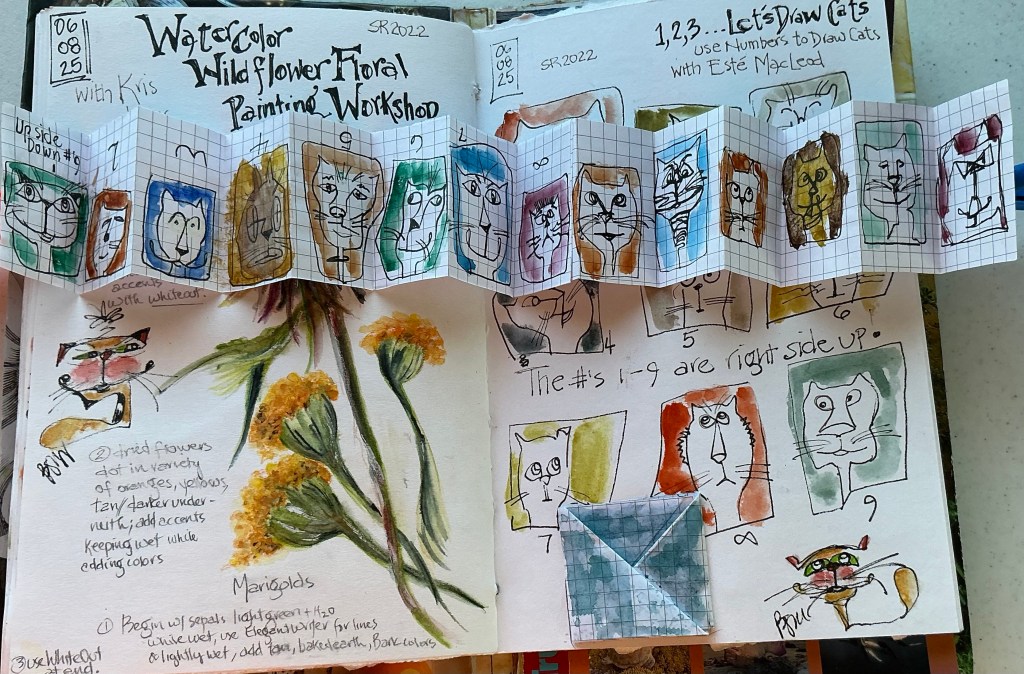 06
08
25
WaterColor
SR2022
Wildflower Floral
with Kris
Painting Workshop
06
08
25
SR2022
1,2,3...Let's Draw Cats
use Numbers to Draw Cats
with Esté MacLeod
upside
Down #'s
accents
with whiteout.
4
5
6
The #'s 1-9 are right side up.
② dried flowers
dot in variety
of oranges, yellows,
tan/darker under-
neath; add accents
keeping wet while
adding colors
7
8
9
Marigolds
① Begin w/ sepals light green + H2O
while wet, use Elegant writer for lines
& lightly wet, add baked earth, Bark colors
③ use WhiteOut
at end.